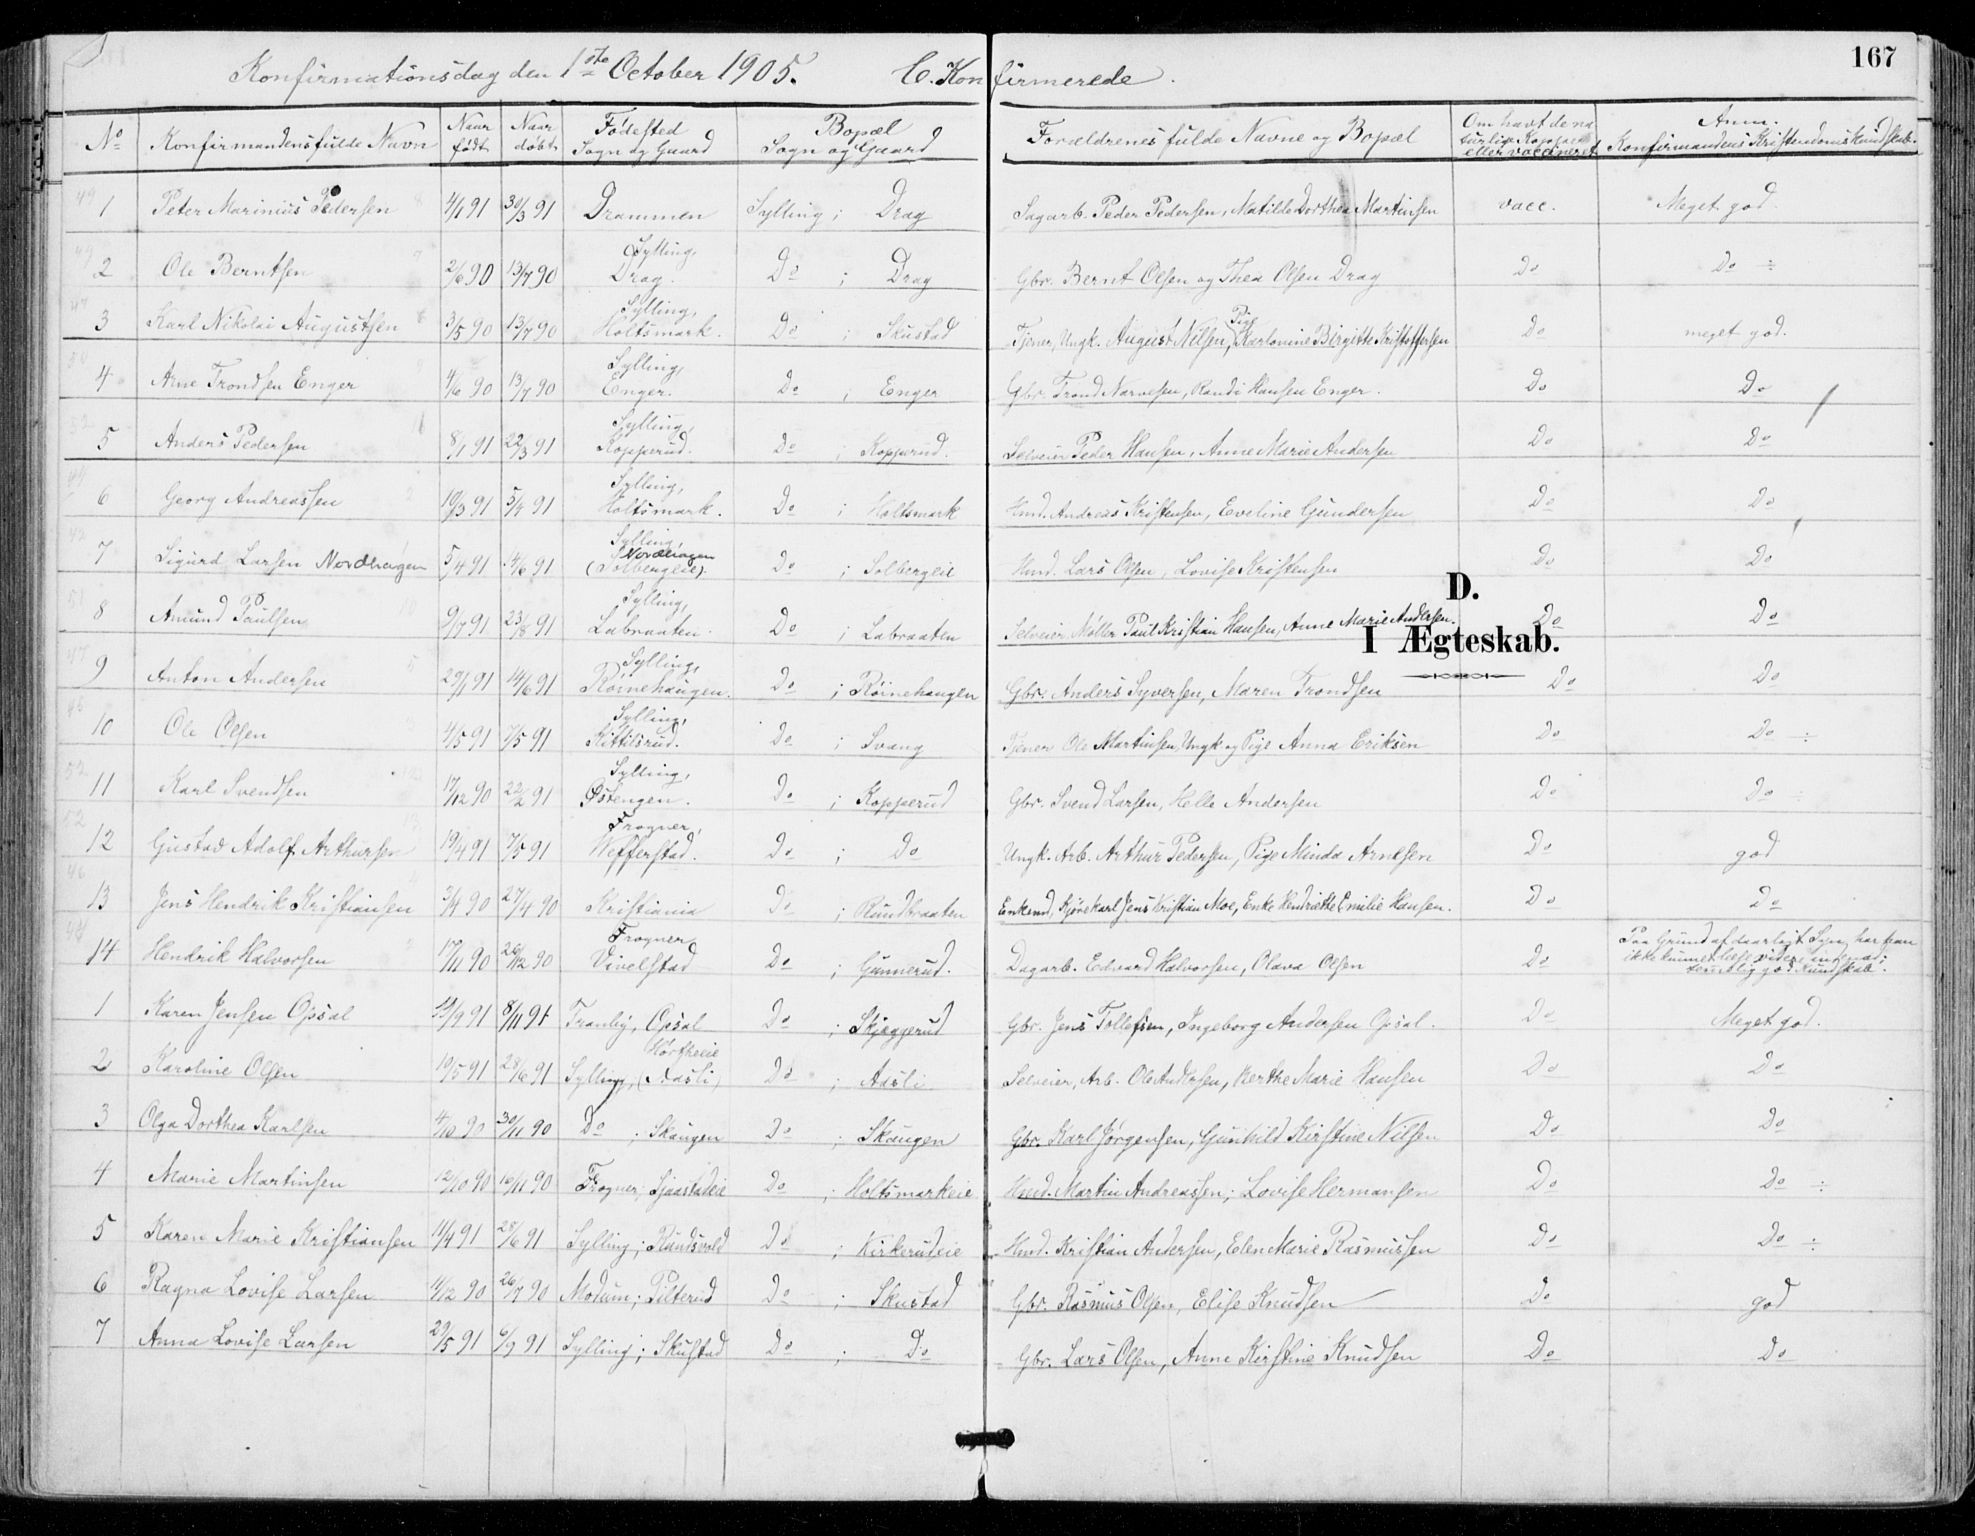 167
Konfirmationsdag den 1ste October 1905. C. Konfirmerede.
No Konfirmandens fulde Navn Naar født Naar døbt Fødested Sogn og Gaard Bopæl Sogn og Gaard Forældrenes fulde Navne og Bopæl Om havt de naturlige Kopper eller vaccineret Anm. Konfirmandens Kristendomskundskab.
1 Peter Marinius Pedersen 4/1 91 30/3 91 Drammen Sylling ; Drag Sagarb. Peder Pedersen, Matilde Dorthea Martinsen vacc. Meget god.
2 Ole Berntsen 2/6 90 13/7 90 Sylling, Drag. Do ; Drag Gbr. Bernt Olsen og Thea Olsen Drag Do Do ÷
3 Karl Nikolai Augustsen 3/5 90 13/7 90 Sylling, Holtsmark. Do ; Skustad Tjener, Ungk. August Nilsen, Pige Karlonine Birgitte Kristoffersen Do meget god.
4 Arne Trondsen Enger 4/6 90 13/7 90 Sylling, Enger. Do ; Enger Gbr. Trond Narvesen, Randi Hansen Enger. Do Do
5 Anders Pedersen 8/1 91 22/3 91 Sylling, Kopperud. Do ; Kopperud. Selveier Peder Hansen, Anne Marie Andersen Do Do
6 Georg Andreassen 10/3 91 5/4 91 Sylling, Holtsmark. Do ; Holtsmark Hmd. Andreas Kristensen, Eveline Gundersen Do Do
7 Sigurd Larsen Nordhagen 5/4 91 14/6 91 Sylling, Nordhagen (Solbergeie). Do ; Solbergeie Hmd. Lars Olsen, Lovise Kristensen Do Do
D.
8 Amund Paulsen 9/7 91 23/8 91 Sylling, Labraaten. Do ; Labraaten Selveier, Møller Paul Kristian Hansen, Anne Marie Andersen. Do Do
I Ægteskab.
9 Anton Andersen 29/1 91 14/6 91 Sylling, Røinehaugen. Do ; Røinehaugen Gbr. Anders Syversen, Maren Trondsen Do Do
10 Ole Olsen 4/5 91 7/5 91 Sylling, Kittilsrud. Do ; Svang Tjener Ole Martinsen, Ungk og Pige Anna Eriksen Do Do ÷
11 Karl Svendsen 17/12 90 22/2 91 Sylling, Østengen. Do ; Kopperud Gbr. Svend Larsen, Helle Andersen Do Do ÷
12 Gustav Adolf Arthursen 19/4 91 7/5 91 Frogner, Wefferstad. Do ; Do Ungk. Arb. Arthur Pedersen, Pige Minda Arnesen Do god
13 Jens Hendrik Kristiansen 3/4 90 27/4 90 Kristiania Do ; Rundbraaten Enkemd, Kjørekarl Jens Kristian Moe, Enke Hendrikke Emilie Hansen. Do Do
14 Hendrik Halvorsen 17/11 90 26/12 90 Frogner Vivelstad Do ; Gunnerud. Dagarb. Edvard Halvorsen, Olava Olsen Do Paa Grund af daarligt Syn, har han ikke kunnet læse videre indenad; temelig god Kundskab.
1 Karen Jensen Opsal 19/9 91 8/11 91 Tranby, Opsal Do ; Skjæggerud Gbr. Jens Tollefsen, Ingeborg Andersen Opsal. Do Meget god.
2 Karoline Olsen 10/5 91 28/6 91 Sylling, Hørtheeie (Aasli) Do ; Aasli Selveier, Arb. Ole Andersen, Berthe Marie Hansen Do Do
3 Olga Dorthea Karlsen 4/10 90 30/11 90 Do ; Skaugen Do ; Skaugen Gbr. Karl Jørgensen, Gunhild Kirstine Nilsen Do Do
4 Marie Martinsen 12/10 90 16/11 90 Frogner; Sjaastadeie Do ; Holtsmarkeie Hmd. Martin Andreassen; Lovise Hermansen Do Do ÷
5 Karen Marie Kristiansen 11/4 91 28/6 91 Sylling; Rundsvold Do ; Kirkerudeie Hmd. Kristian Andersen, Elen Marie Rasmussen Do Do ÷
6 Ragna Lovise Larsen 11/12 90 26/7 90 Modum; Pilterud Do ; Skustad Gbr. Rasmus Olsen, Elise Knudsen Do god
7 Anna Lovise Larsen 29/5 91 6/9 91 Sylling; Skustad Do ; Do Gbr. Lars Olsen, Anne Kirstine Knudsen Do Do